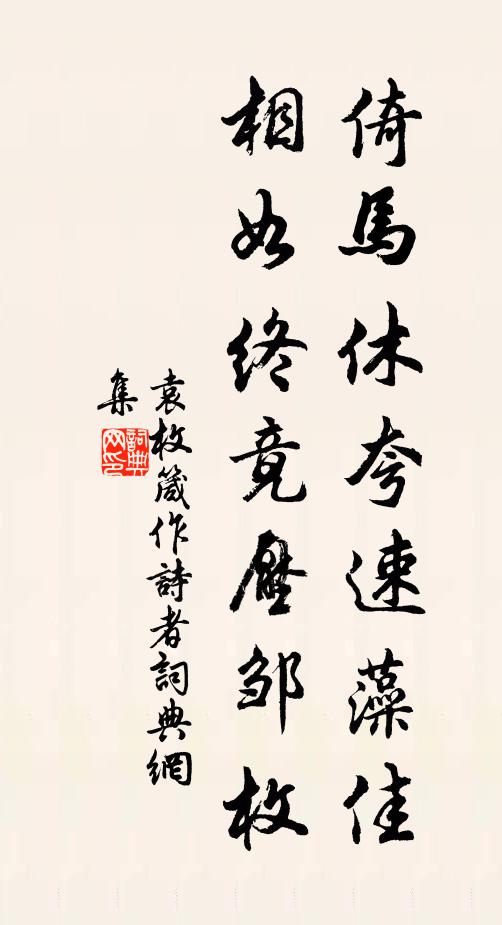 倚馬休夸速藻佳
相如終竟壓邹枚
袁枚箴作詩者詞典網
集
詞典网印